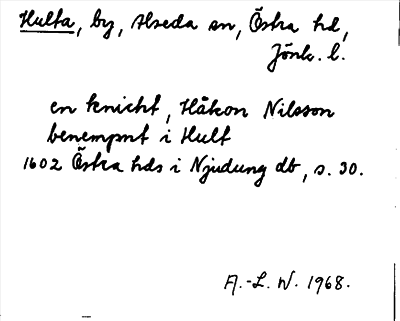 Hulta, by, Alseda sn, Östra hd,
Jönk. l.
en knicht, Håkon Nilsson
benempnt i Hult
1602 Östra hds i Njudung db, s. 30.
A.-L. W. 1968.